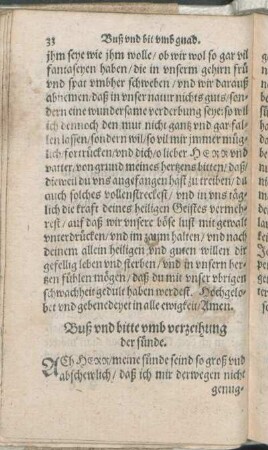 33 Buß vnd bit vmb gnad.
jhm seye wie jhm wolle / ob wir wol so gar vil
fantaseyen haben / die in vnserm gehirn frü
vnd spat vmbher schweben / vnd wir darauß
abnemen / daß in vnser natur nichts guts / son-
dern eine wundersame verderbung seye: so wil
ich dennoch den mut nicht gantz vnd gar fal-
len lassen / sondern wil / so vil mir jmmer müg-
lich / fortrücken / vnd dich / o lieber HERR vnd
vatter / von grund meines hertzens bitten / daß /
dieweil du vns angefangen hast zu treiben / du
auch solches vollenstreckest / vnd in vns täg-
lich die kraft deines heiligen Geistes vermeh-
rest / auf daß wir vnsere böse lust mit gewalt
vnterdrücken / vnd im zaum halten / vnd nach
deinem allem heiligen vnd guten willen dir
gefellig leben vnd sterben / vnd in vnsern her-
tzen fühlen mögen / daß du mit vnser vbrigen
schwachheit gedult haben werdest. Hochgelo-
bet vnd gebenedeyet in alle ewigkeit / Amen.
Buß vnd bitte vmb verzeihung
der sünde.
ACh HERR / meine sünde seind so groß vnd
abschewlich / daß ich mir derwegen nicht
genug-